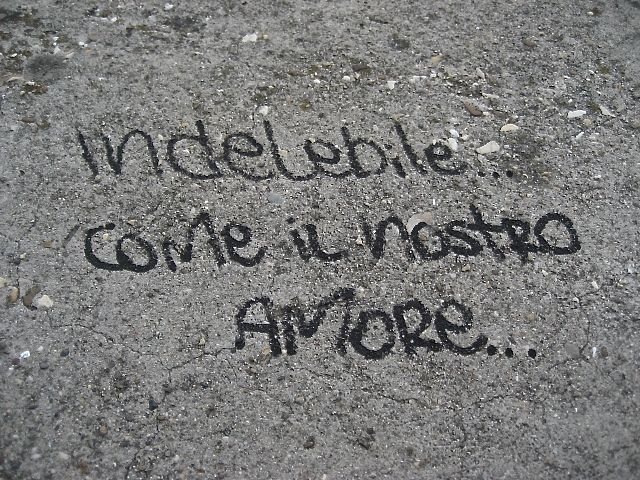 Indelebile...
come il nostro
AMORe...